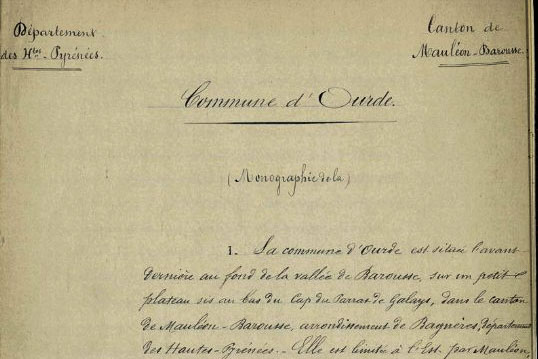 Département
des Htes-Pyrénées.
Canton de
Mauléon-Barousse.
Commune d'Ourde.
(Monographie de la)
1. La commune d'Ourde est située l'avant-
dernière au fond de la vallée de Barousse, sur un petit
plateau sis au bas du Cap du
dans le canton
de Mauléon-Barousse, arrondissement de Bagnères, département
des Hautes-Pyrénées. - Elle est limitée à l'Est par Mauléon,